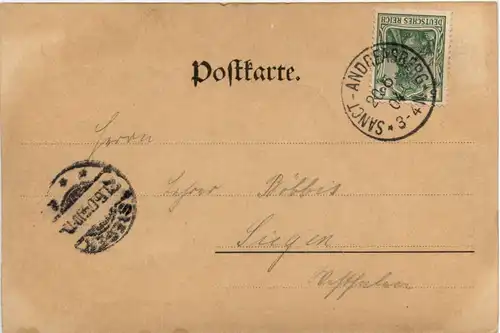 DEUTSCHES REICH
SANCT-ANDREASBERG
20 6
04
3-4N
Postkarte.
Herrn
Lehrer Döbbis
Siegen
Westfalen
SIEGEN